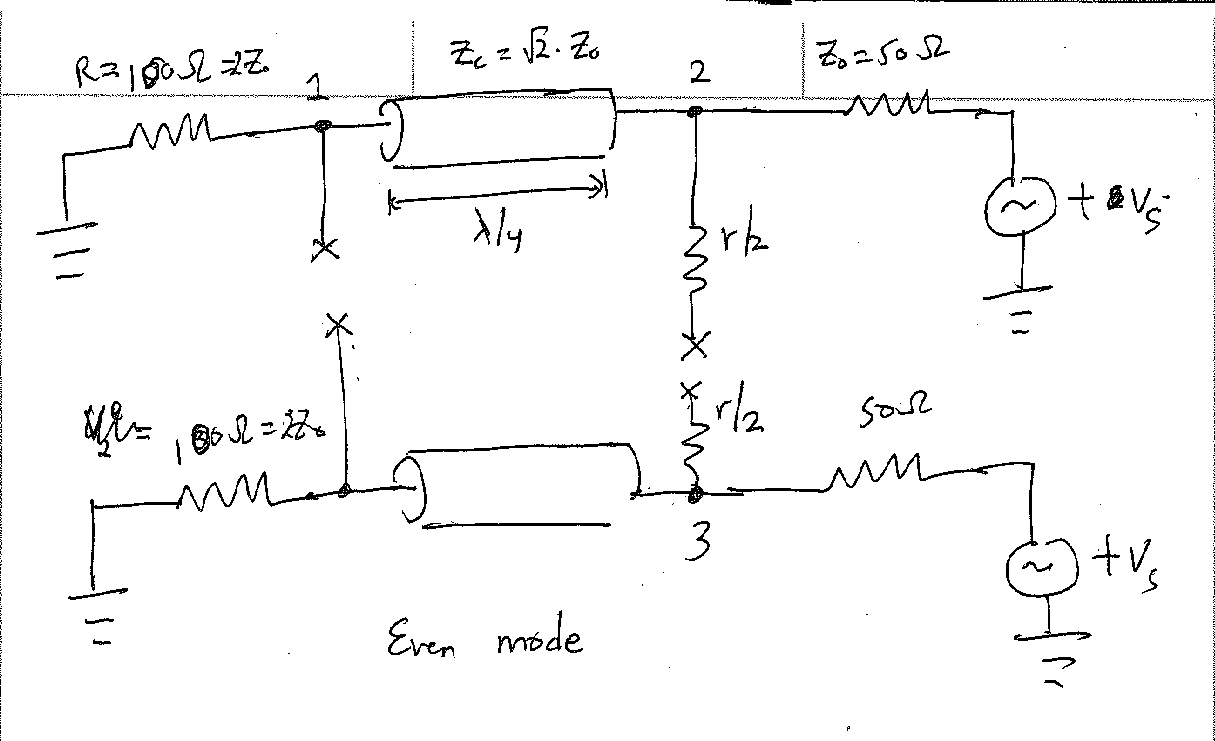 R = 100Ω = 2Z₀
1
Z꜀ = √2 · Z₀
2
Z₀ = 50Ω
λ/4
r/2
+ Vₛ
100Ω = 2Z₀
r/2
50Ω
3
+ Vₛ
Even mode